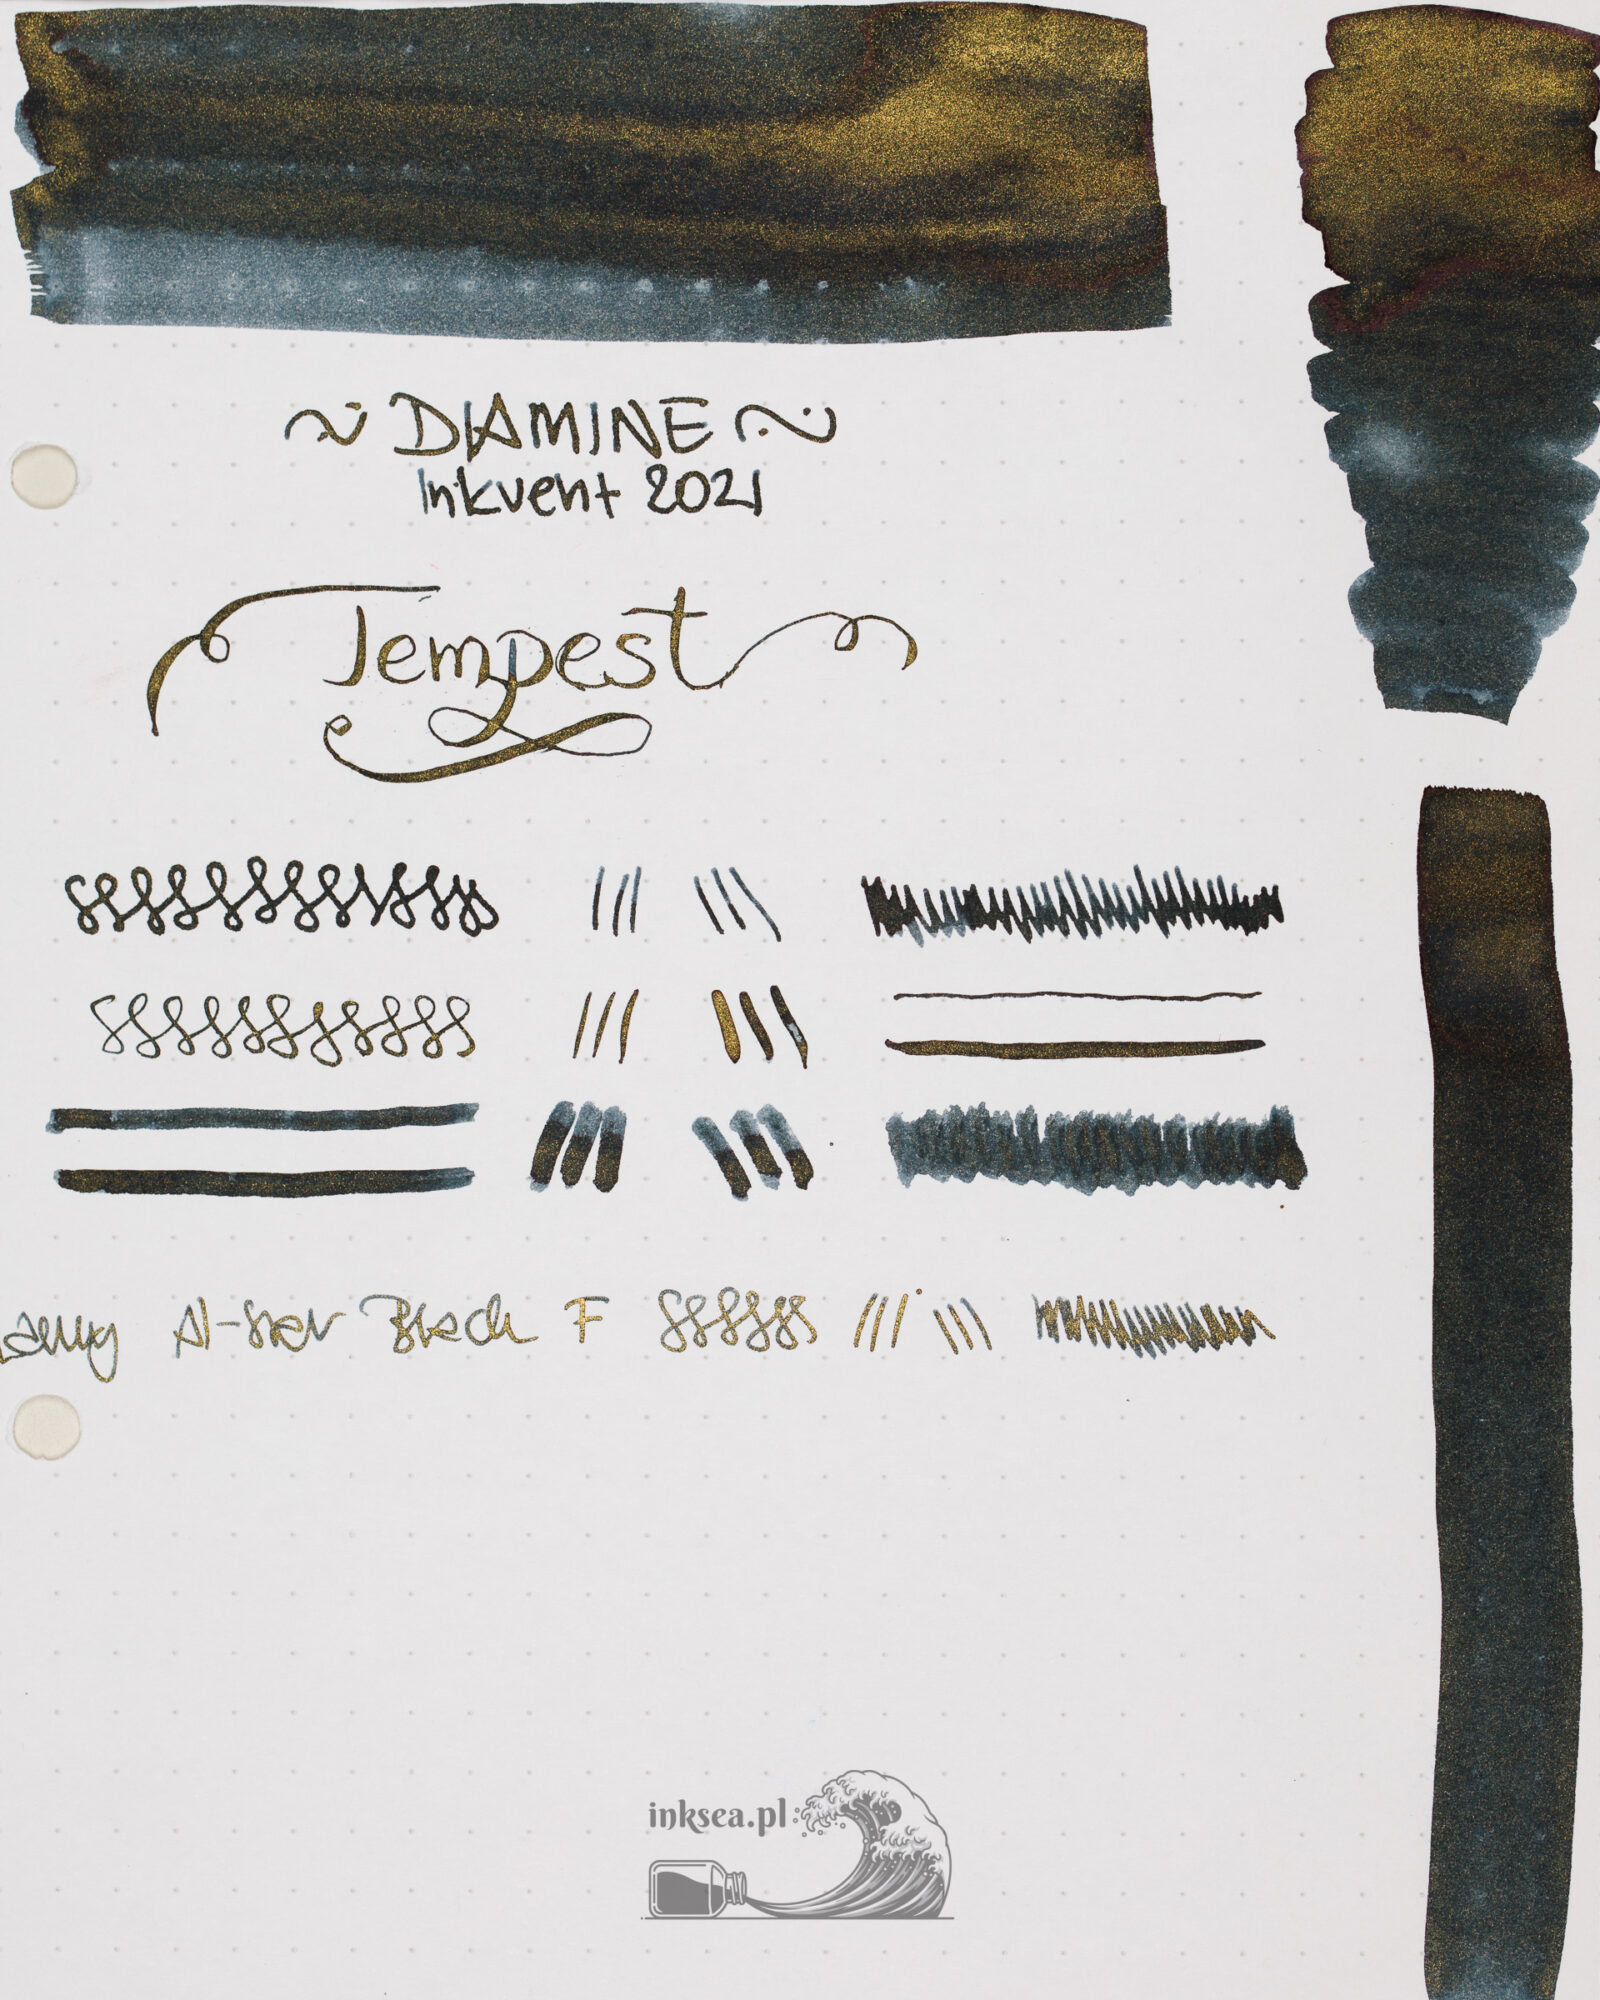 ~ DIAMINE ~
Inkvent 2021
Tempest
Lamy Al-Star Black F
inksea.pl